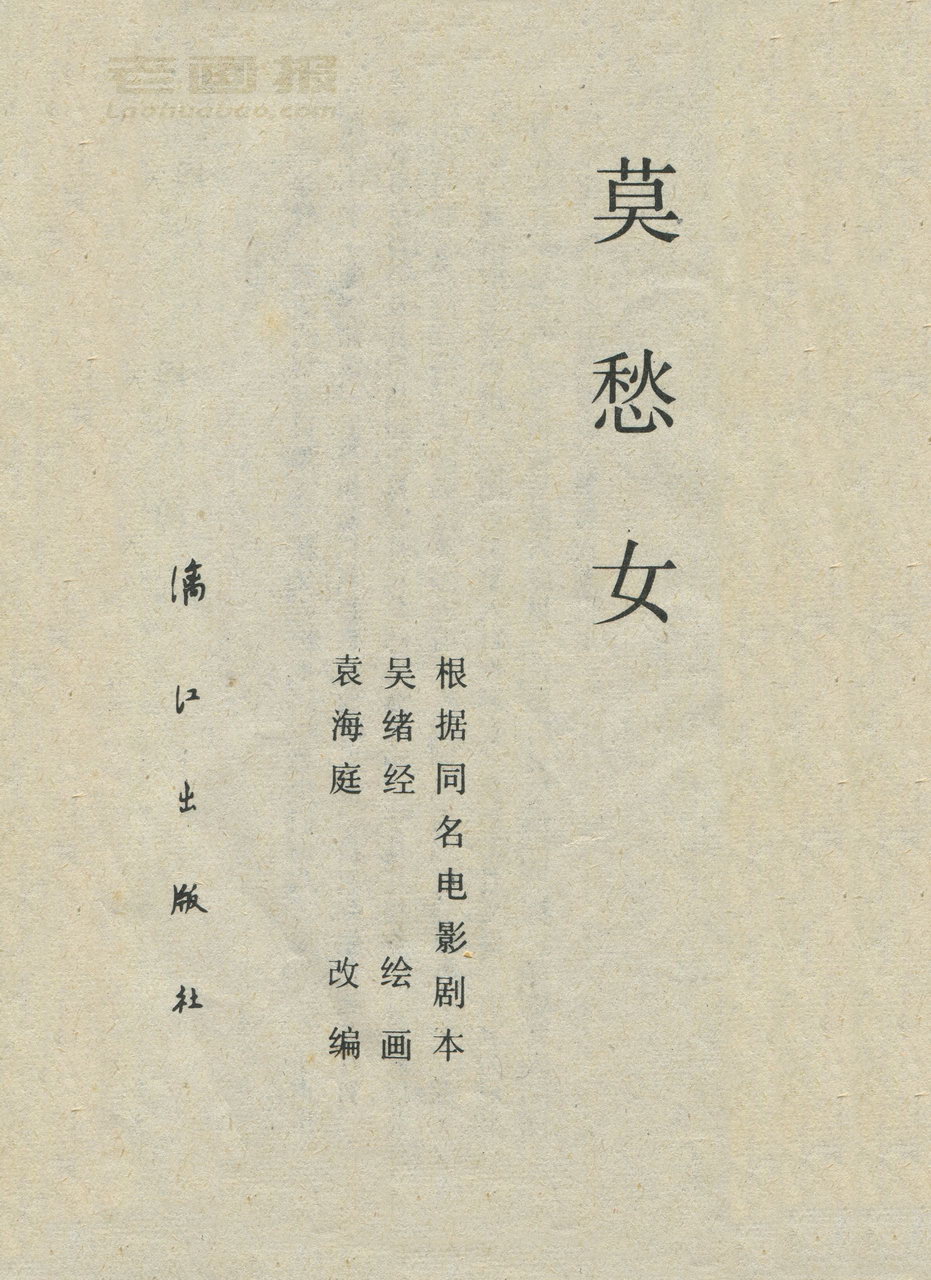 老画报
Laohuabao.com
莫愁女
根据同名电影剧本
吴绪经 绘画
袁海庭 改编
漓江出版社